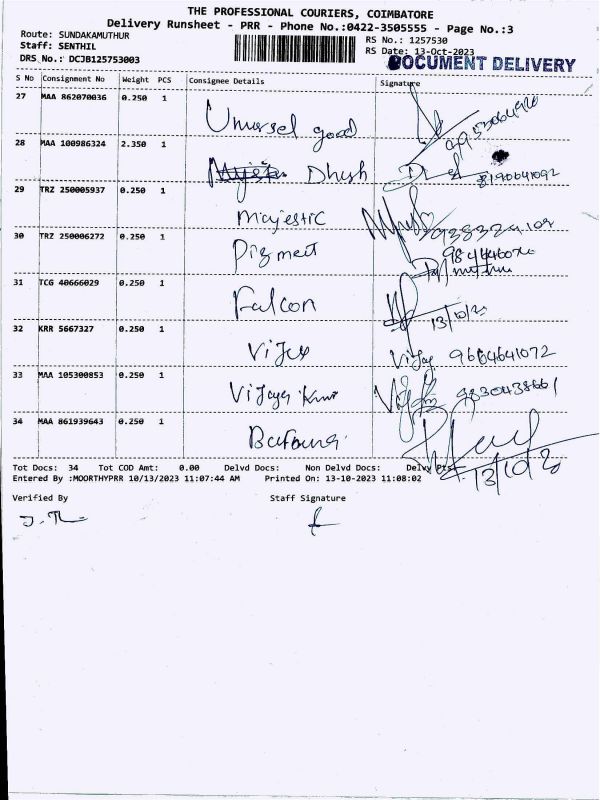 THE PROFESSIONAL COURIERS, COIMBATORE
Delivery Runsheet - PRR - Phone No.:0422-3505555 - Page No.:3
Route: SUNDAKAMUTHUR
RS No.: 1257530
Staff: SENTHIL
RS Date: 13-Oct-2023
DRS No.: DCJB125753003
DOCUMENT DELIVERY
S No Consignment No Weight PCS Consignee Details Signature
27 MAA 862070036 0.250 1
good
28 MAA 100986324 2.350 1
Dhish
8190641092
29 TRZ 250005937 0.250 1
Majestic
30 TRZ 250006272 0.250 1
Pigment
31 TCG 40666029 0.250 1
Falcon
13/10/2
32 KRR 5667327 0.250 1
Vijay
Vijay 9664641072
33 MAA 105300853 0.250 1
34 MAA 861939643 0.250 1
13/10/2
Tot Docs: 34 Tot COD Amt: 0.00 Delvd Docs: Non Delvd Docs: Delvy Pts:
Entered By :MOORTHYPRR 10/13/2023 11:07:44 AM Printed On: 13-10-2023 11:08:02
Verified By Staff Signature